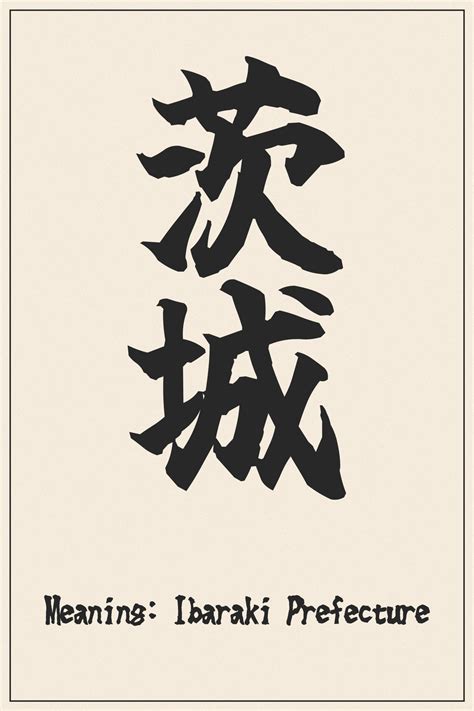 茨城
Meaning: Ibaraki Prefecture